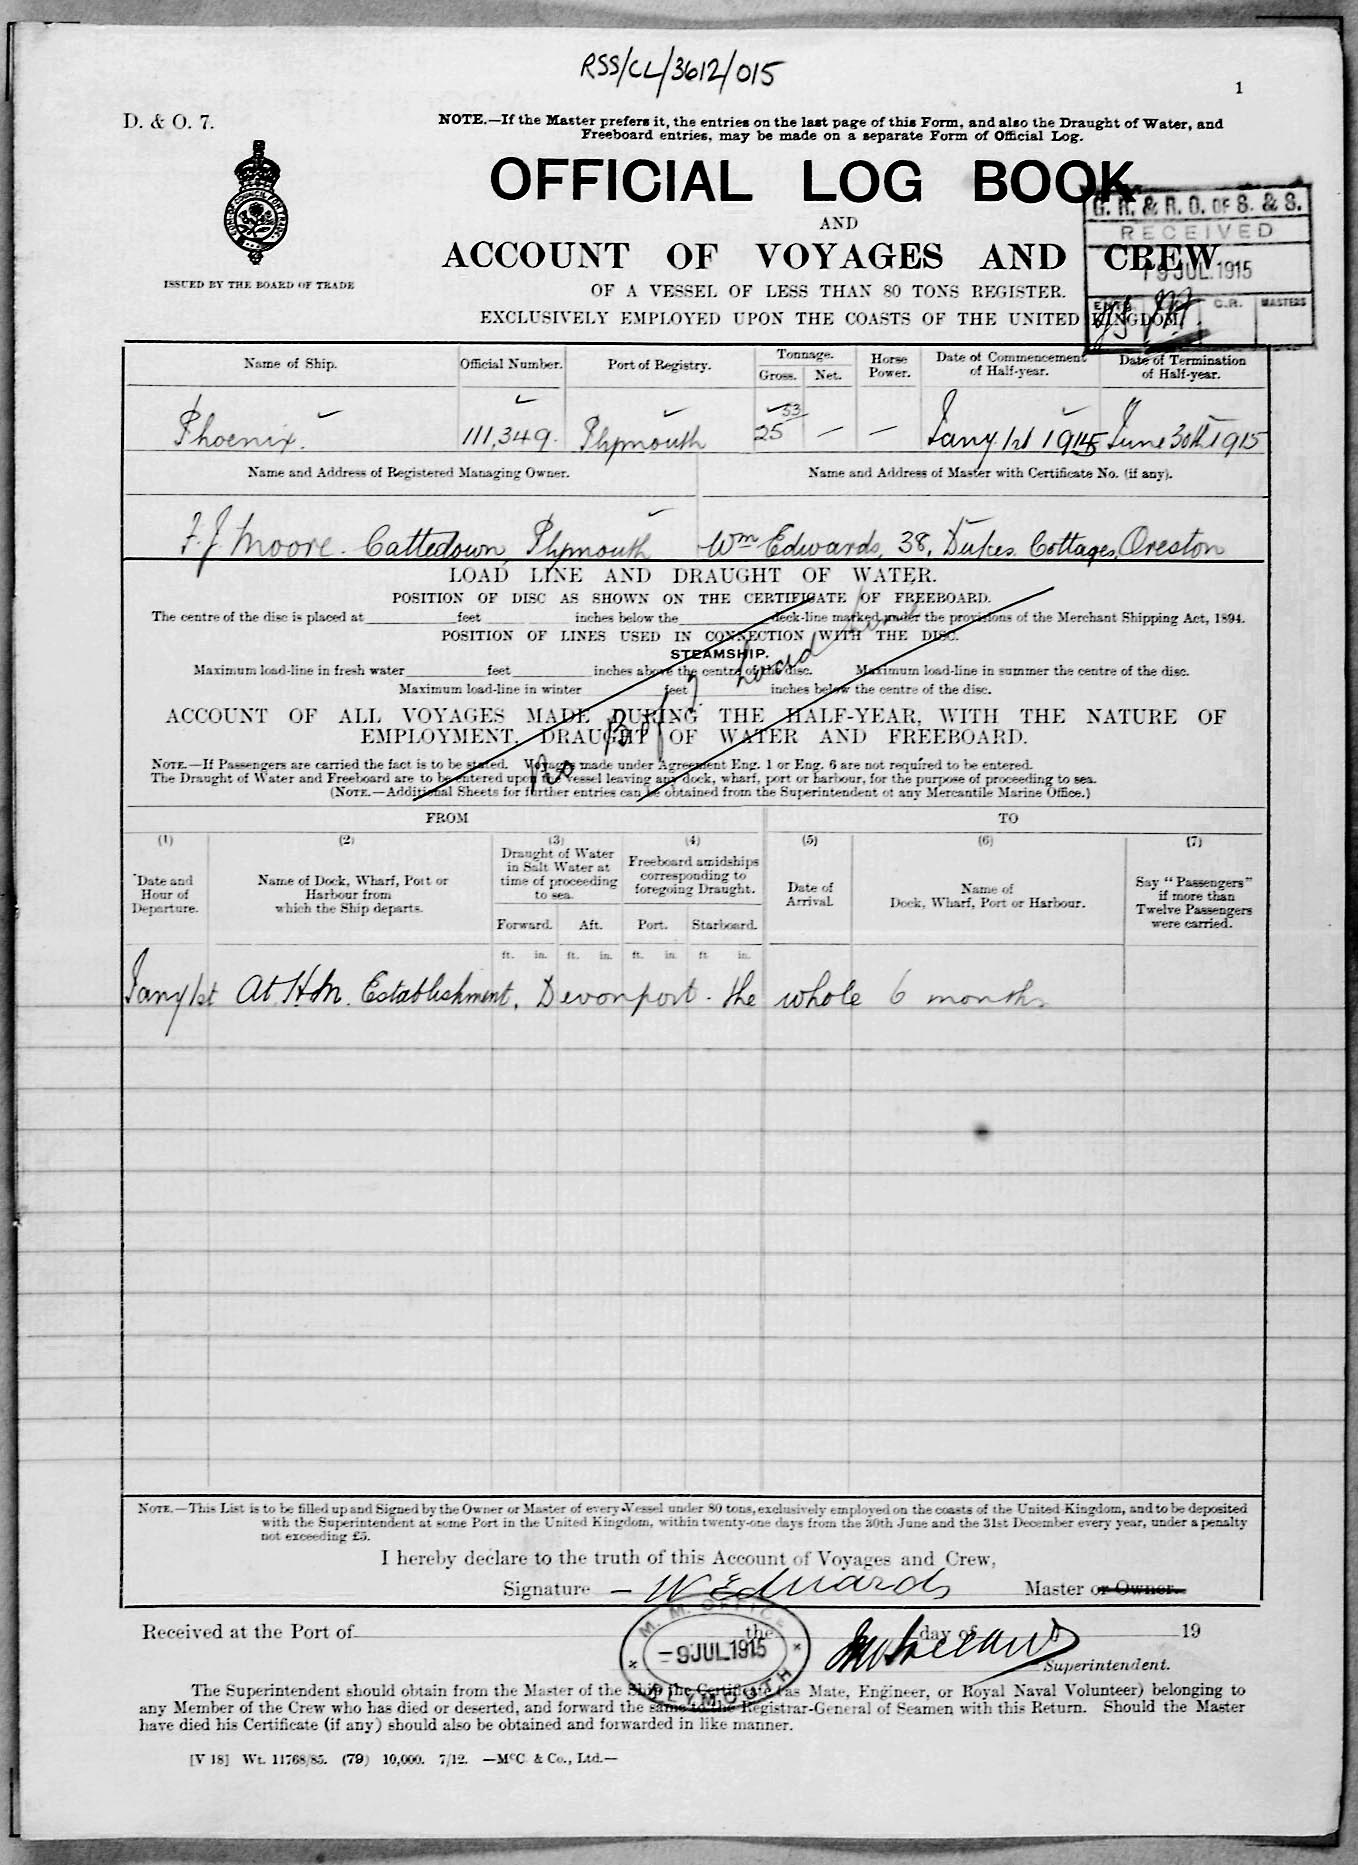 RSS/CL/3612/015
1
D. & O. 7.
NOTE.—If the Master prefers it, the entries on the last page of this Form, and also the Draught of Water, and
Freeboard entries, may be made on a separate Form of Official Log.
OFFICIAL LOG BOOK
G. R. & R. O. OF S. & S.
RECEIVED
AND
ACCOUNT OF VOYAGES AND CREW
19 JUL.1915
ISSUED BY THE BOARD OF TRADE
OF A VESSEL OF LESS THAN 80 TONS REGISTER.
C.R. MASTERS
EXCLUSIVELY EMPLOYED UPON THE COASTS OF THE UNITED KINGDOM.
Name of Ship. Official Number. Port of Registry. Tonnage. Gross. Net. Horse Power. Date of Commencement of Half-year. Date of Termination of Half-year.
Phoenix. 111,349. Plymouth 25 53 — — Jany 1st 1915 June 30th 1915
Name and Address of Registered Managing Owner. Name and Address of Master with Certificate No. (if any).
F. J. Moore. Cattedown, Plymouth Wm Edwards, 38, Dukes Cottages, Oreston
LOAD LINE AND DRAUGHT OF WATER.
POSITION OF DISC AS SHOWN ON THE CERTIFICATE OF FREEBOARD.
The centre of the disc is placed at feet inches below the deck-line marked under the provisions of the Merchant Shipping Act, 1894.
POSITION OF LINES USED IN CONNECTION WITH THE DISC.
STEAMSHIP.
Maximum load-line in fresh water feet inches above the centre of the disc. Maximum load-line in summer the centre of the disc.
Maximum load-line in winter feet inches below the centre of the disc.
No B of T Load Line
ACCOUNT OF ALL VOYAGES MADE DURING THE HALF-YEAR, WITH THE NATURE OF
EMPLOYMENT, DRAUGHT OF WATER AND FREEBOARD.
NOTE.—If Passengers are carried the fact is to be stated. Voyages made under Agreement Eng. 1 or Eng. 6 are not required to be entered.
The Draught of Water and Freeboard are to be entered upon the vessel leaving any dock, wharf, port or harbour, for the purpose of proceeding to sea.
(NOTE.—Additional Sheets for further entries can be obtained from the Superintendent of any Mercantile Marine Office.)
FROM TO
(1) (2) (3) (4) (5) (6) (7)
Date and Hour of Departure.
Name of Dock, Wharf, Port or Harbour from which the Ship departs.
Draught of Water in Salt Water at time of proceeding to sea.
Freeboard amidships corresponding to foregoing Draught.
Date of Arrival.
Name of Dock, Wharf, Port or Harbour.
Say "Passengers" if more than Twelve Passengers were carried.
Forward. Aft. Port. Starboard.
ft. in. ft. in. ft. in. ft in.
Jany 1st At H.M. Establishment, Devonport. the whole 6 months
NOTE.—This List is to be filled up and Signed by the Owner or Master of every Vessel under 80 tons, exclusively employed on the coasts of the United Kingdom, and to be deposited
with the Superintendent at some Port in the United Kingdom, within twenty-one days from the 30th June and the 31st December every year, under a penalty
not exceeding £5.
I hereby declare to the truth of this Account of Voyages and Crew,
Signature — W Edwards Master or Owner.
Received at the Port of the day of 19
M. M. OFFICE
-9 JUL 1915
PLYMOUTH
Superintendent.
The Superintendent should obtain from the Master of the Ship the Certificate (as Mate, Engineer, or Royal Naval Volunteer) belonging to
any Member of the Crew who has died or deserted, and forward the same to the Registrar-General of Seamen with this Return. Should the Master
have died his Certificate (if any) should also be obtained and forwarded in like manner.
[V 18] Wt. 11768/85. (79) 10,000. 7/12. —McC. & Co., Ltd.—